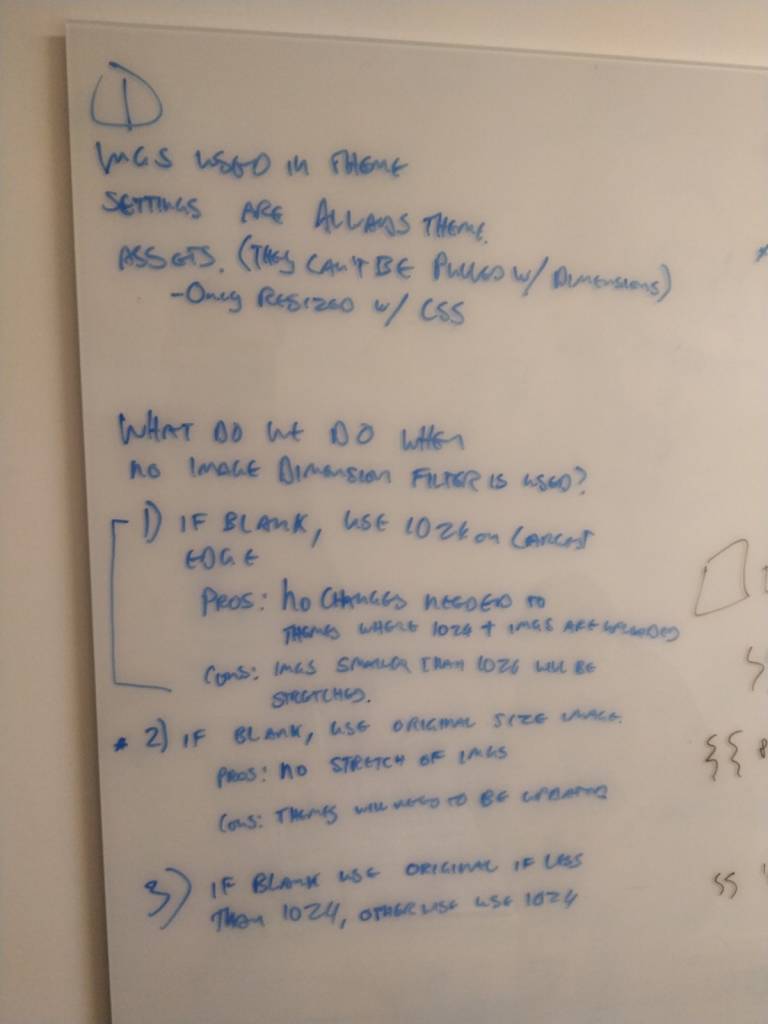 ①
IMGS USED IN THEME
SETTINGS ARE ALWAYS THEME
ASSETS. (THEY CAN'T BE PULLED W/ DIMENSIONS)
- ONLY RESIZED W/ CSS
WHAT DO WE DO WHEN
NO IMAGE DIMENSION FILTER IS USED?
1) IF BLANK, USE 1024 ON LARGEST
EDGE
PROS: NO CHANGES NEEDED TO
THEMES WHERE 1024+ IMGS ARE UPLOADED
CONS: IMGS SMALLER THAN 1024 WILL BE
STRETCHED.
* 2) IF BLANK, USE ORIGINAL SIZE IMAGE.
PROS: NO STRETCH OF IMGS
CONS: THEMES WILL NEED TO BE UPDATED
3) IF BLANK USE ORIGINAL IF LESS
THAN 1024, OTHERWISE USE 1024